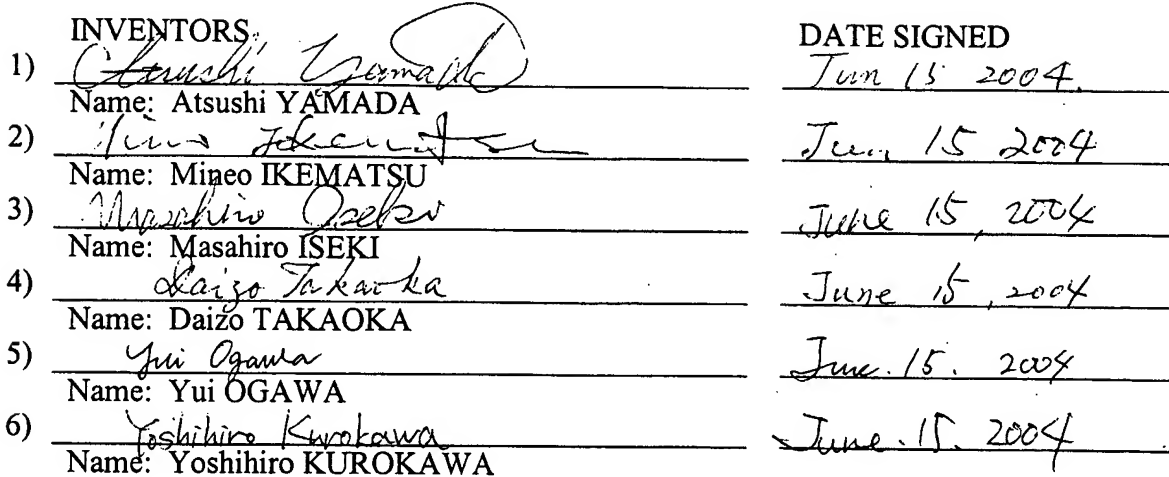 INVENTORS DATE SIGNED
1) Atsushi Yamada Jun 15 2004.
Name: Atsushi YAMADA
2) Mineo Ikematsu Jun. 15 2004
Name: Mineo IKEMATSU
3) Masahiro Iseki June 15, 2004
Name: Masahiro ISEKI
4) Daizo Takaoka June 15, 2004
Name: Daizo TAKAOKA
5) Yui Ogawa June. 15. 2004
Name: Yui OGAWA
6) Yoshihiro Kurokawa June. 15. 2004
Name: Yoshihiro KUROKAWA